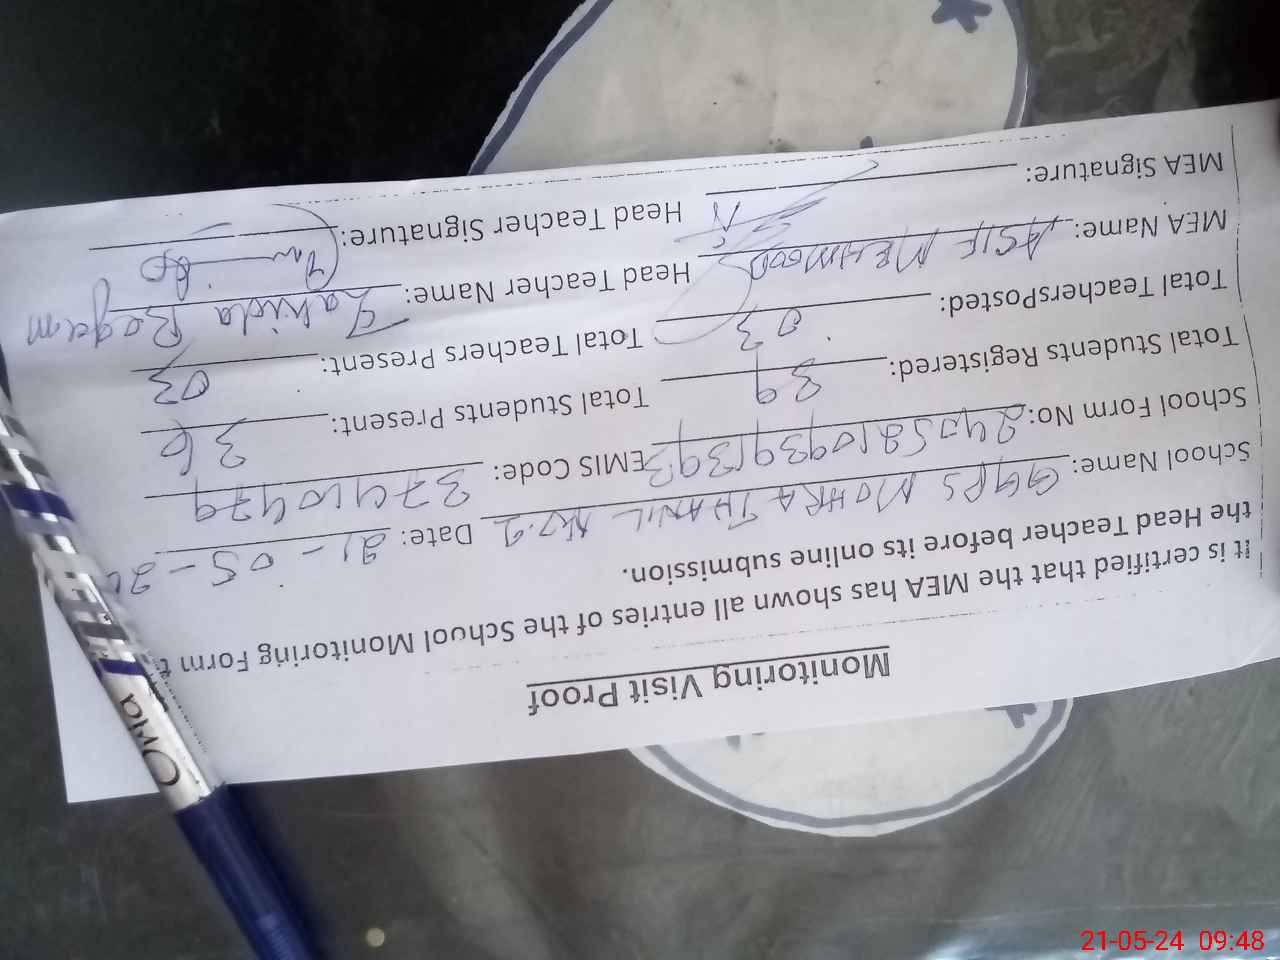 Monitoring Visit Proof
It is certified that the MEA has shown all entries of the School Monitoring Form
the Head Teacher before its online submission.
School Name: GGPS MOHRA THANIL No.2 Date: 21-05-20
School Form No: 2405210939139 EMIS Code: 37410479
Total Students Registered: 39 Total Students Present: 36
Total TeachersPosted: 03 Total Teachers Present: 03
MEA Name: ASIF MEHMOOD Head Teacher Name: Zahida Begum
MEA Signature: Head Teacher Signature:
Oria
21-05-24 09:48